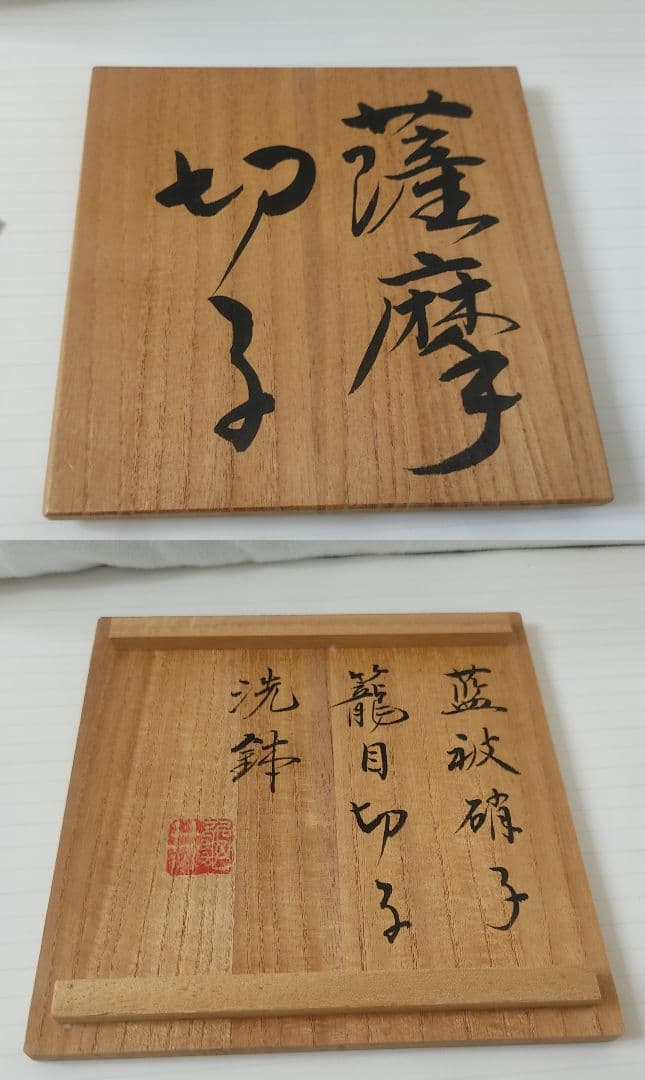 薩摩
切子
藍被硝子
籠目切子
洗鉢